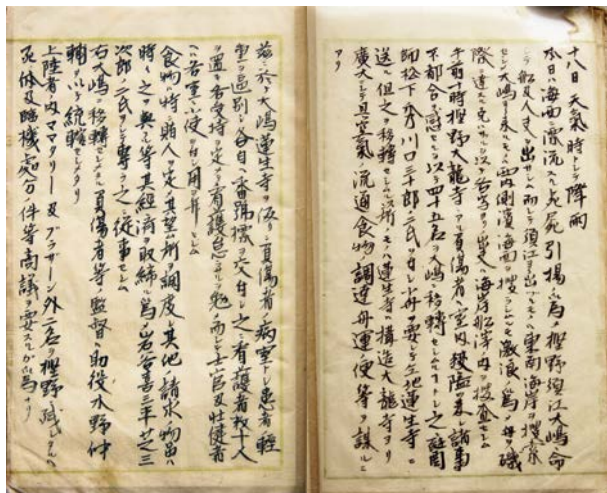 十八日 天氣時トシテ降雨
本日ハ海面ニ漂流スル死屍引揚ノ為メ樫野須江大嶋ニ命
シ船及人夫ヲ出サシム而シテ須江ヨリ出デタルモノハ東南海岸ヲ捜索
セシメ大嶋ヨリ来ルモノハ西内側濱海面ヲ捜ラシムルモ激浪ノ為メ舟ヲ磯
際ニ達スル克ハザルヲ以テ各字ヨリ出デ海岸船津内ヲ捜査セシム
午前十時樫野大龍寺ニアル負傷者ハ室内狭隘ニシテ諸事
不都合ヲ感ズルヲ以テ四十五名ヲ大嶋ニ移轉セシムルコトトシ之ニ醫
師松下秀川口三十郎ノ二氏ヲ付シ舟ニ乗シテ土地蓮生寺ニ
送ル但之ヲ移轉セシムル所以ノモノハ蓮生寺ノ構造大龍寺ヨリ
廣大ニシテ且空氣ノ流通食物ノ調達舟運ノ便等ヲ謀ルニ
アリ
茲ニ於テ大嶋蓮生寺ヲ仮リニ負傷者ノ病室トシ患者ノ軽
重ヲ區別シ各自ニ番號標ヲ交付シ之ニ看護者数十人
ヲ置キ各受持ヲ定メ看護怠ラザルヲ勉メ而シテ士官及壮健者
ヘハ各室ニ小使ヲ付シ用ヲ弁セシム
食物ハ特ニ賄人ヲ定メ其望ム所ノ其他請求物品ハ
時々之ヲ與ヘ等其経済ノ取締ノ為メ岩谷喜三平芝三
次郎ノ二氏ヲシテ専ラ之ニ従事セシム
右大嶋ニ移轉セシメタル負傷者等ノ監督ハ助役水野仲
輔ヲ以テ統轄セシメタリ
上陸者ノ内ママタリー及ブラザーン外二名ヲ樫野ニ残シタルハ
死体及臨機處分ノ件等商議ヲ要スルガ為メナリ